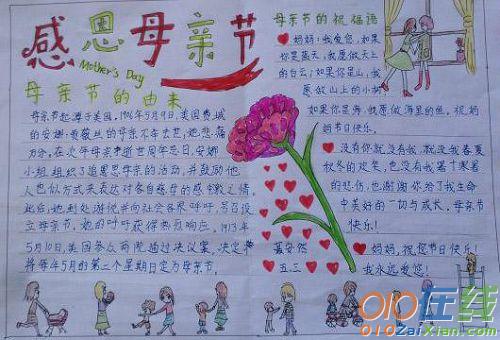 感恩母亲节
Mother's Day
母亲节的由来
母亲节起源于美国。1906年5月9日，美国费城
的安娜·
的母亲不幸去世，她悲痛
万分。在次年母亲逝世周年忌日，安娜
小姐组织了追思母亲的活动，并鼓励他
人也以类似方式来表达对各自慈母的感激之情。
此后，她到处游说并向社会各界呼吁，号召设
立母亲节。她的呼吁获得热烈响应。1913年
5月10日，美国参众两院通过决议案，决定
将每年5月的第二个星期日定为母亲节。
母亲节的祝福语
妈妈：我爱您，如果
你是蓝天，我愿做天上
的白云；如果你是山，我
愿做山上的小树
如果你是海，我愿做海里的鱼。祝妈
妈节日快乐！
没有你就没有我，就没我春夏
秋冬的欢笑，也没有我
的悲伤，也谢谢你给了我生命
中美好的一切与成长，母亲节
快乐！
妈妈，祝您节日快乐！
我永远爱您！
聂安然
五三
010在线
010ZaiXian.com